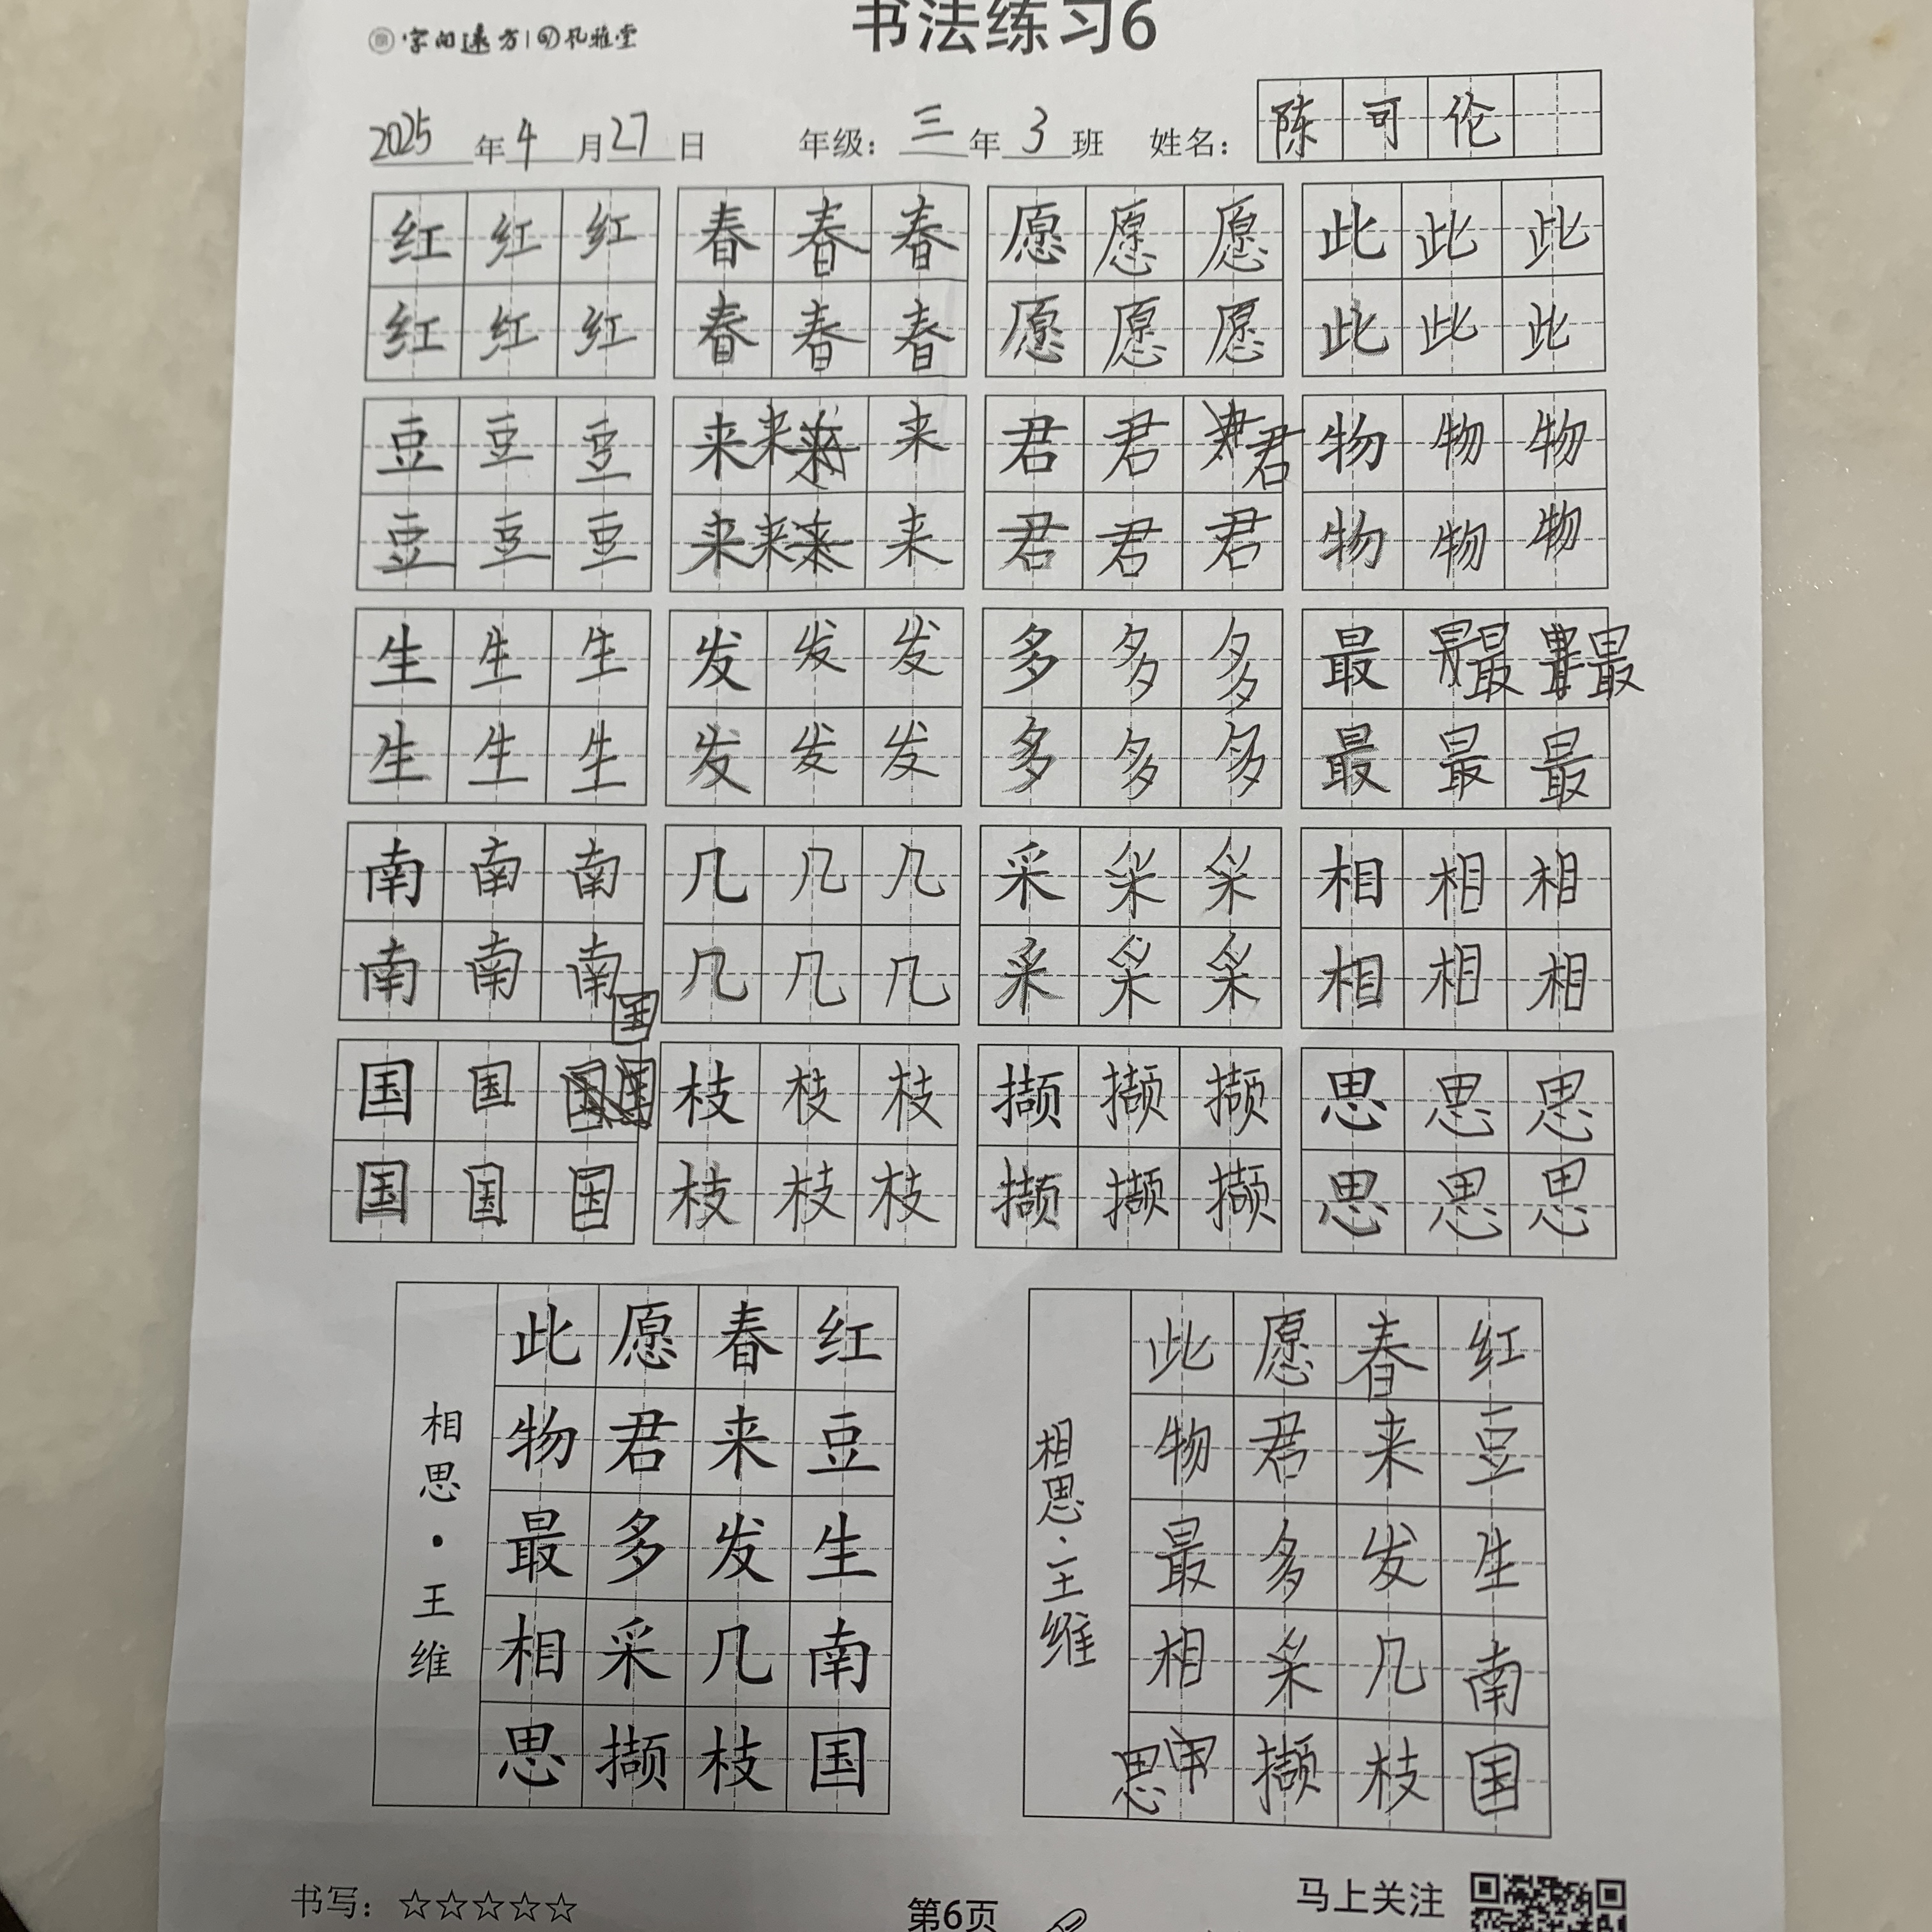 字向远方 孔雅堂
书法练习6
2025年4月27日 年级：三年3班 姓名：陈可伦
红红红 春春春 愿愿愿 此此此
红红红 春春春 愿愿愿 此此此
豆豆豆 来来来 君君君 物物物
豆豆豆 来来来 君君君 物物物
生生生 发发发 多多多 最最最
生生生 发发发 多多多 最最最
南南南 几几几 采采采 相相相
南南南 几几几 采采采 相相相
国
国国 枝枝枝 撷撷撷 思思思
国国国 枝枝枝 撷撷撷 思思思
红豆生南国
春来发几枝
愿君多采撷
此物最相思
相思·王维
红豆生南国
春来发几枝
愿君多采撷
此物最相思
相思·王维
书写：☆☆☆☆☆
第6页
马上关注